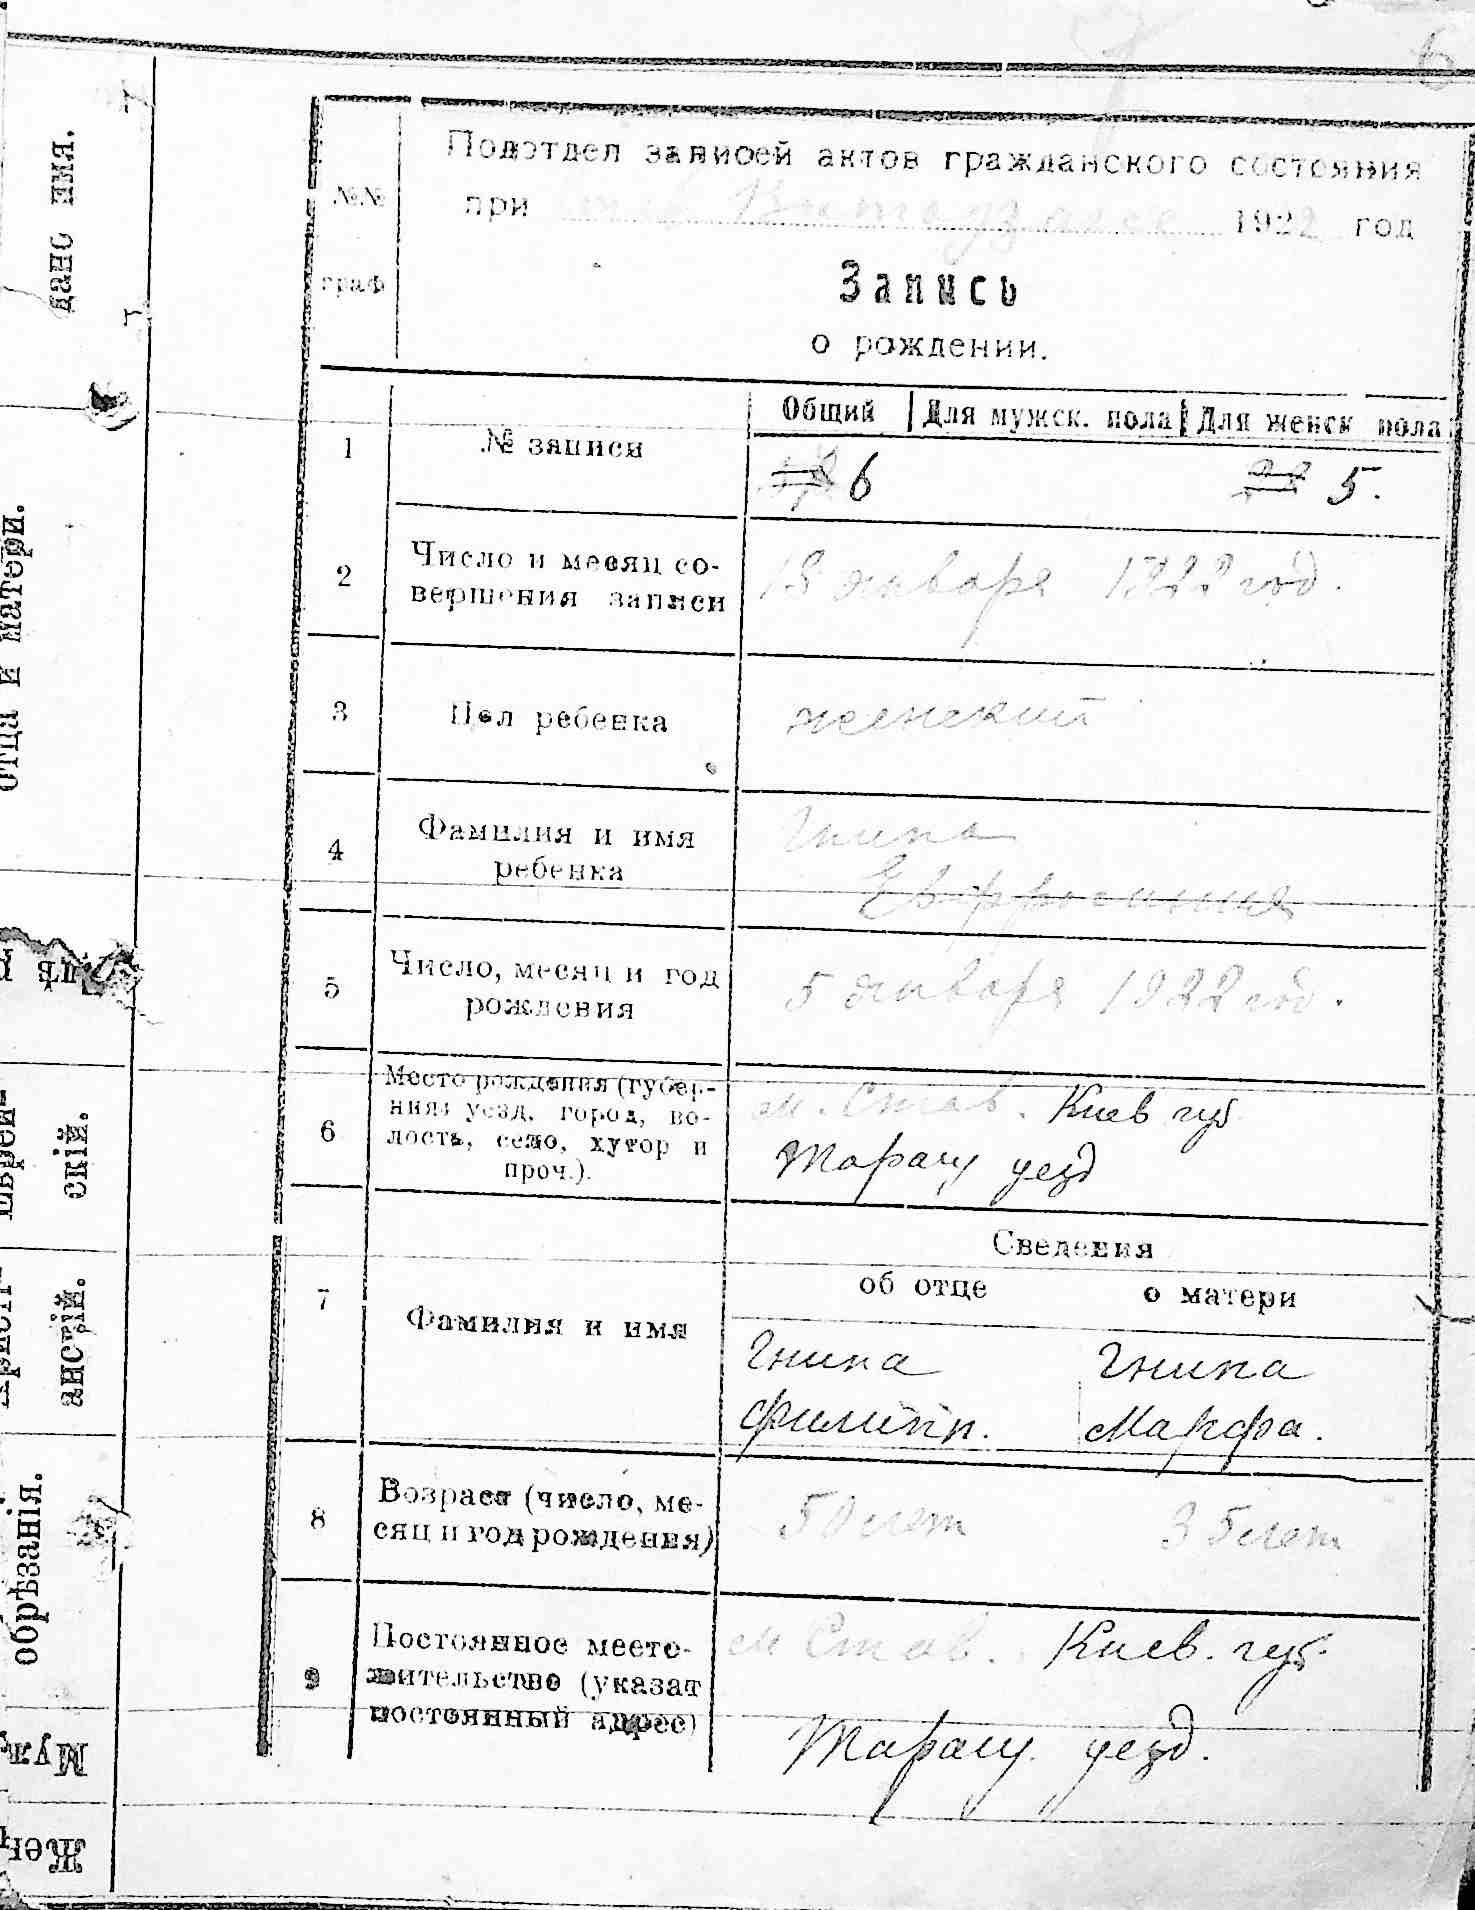 6
Подотдел записей актов гражданского состояния
№№ при 1922 год
граф
Запись
о рождении.
Общий Для мужск. пола Для женск пола
1 № записи 6 5.
2 Число и месяц со-
вершения записи 18 января 1922 год.
3 Пол ребенка женский
4 Фамилия и имя
ребенка
Гнипа
Евфросиния
5 Число, месяц и год
рождения 5 января 1922 год.
6 Место рождения (губер-
ния, уезд, город, во-
лость, село, хутор и
проч.).
м. Став. Киев губ.
Таращ уезд
Сведения
об отце о матери
7 Фамилия и имя
Гнипа Гнипа
Филипп. Марфа.
8 Возраст (число, ме-
сяц и год рождения) 50 лет 35 лет
9 Постоянное место-
жительство (указат
постоянный адрес)
м Став. Киев. губ.
Таращ. уезд.
дано имя.
отца и матери.
Еврей-
скій.
Христі-
анскій.
обрѣзанія.
Муж
Жен